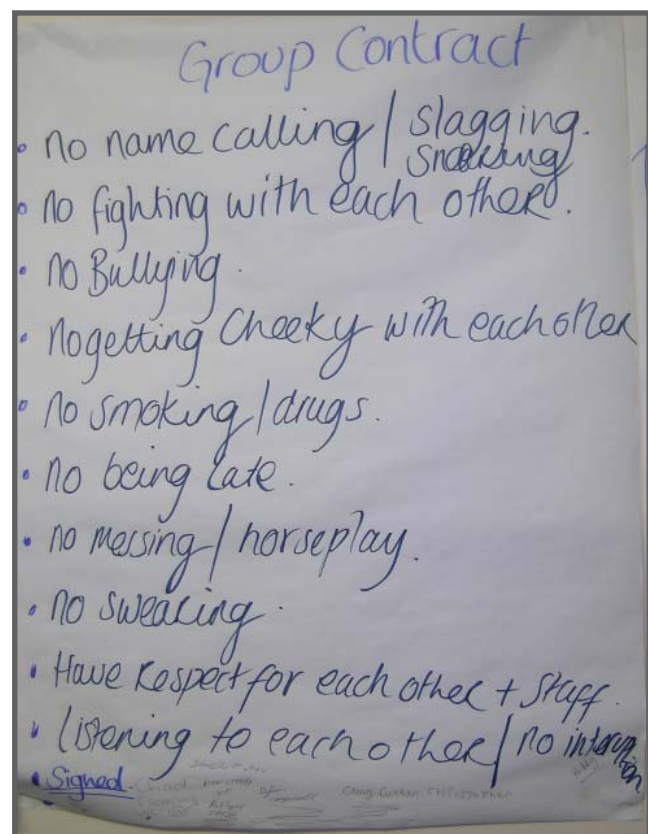 Group Contract
• no name calling / slagging.
smoking
• no fighting with each other.
• no Bullying.
• no getting cheeky with each other
• no smoking / drugs.
• no being late.
• no messing / horseplay.
• no swearing.
• Have Respect for each other + staff.
• listening to each other / no
• Signed.
Chad
Craig Curran CHRISTOPHER
Paddy